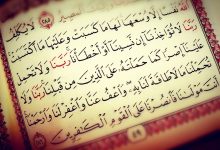 لَا يُكَلِّفُ اللَّهُ
نَفْسًا إِلَّا وُسْعَهَا لَهَا مَا كَسَبَتْ وَعَلَيْهَا مَا اكْتَسَبَتْ
رَبَّنَا لَا تُؤَاخِذْنَا إِن نَّسِينَا أَوْ أَخْطَأْنَا رَبَّنَا وَلَا تَحْمِلْ
عَلَيْنَا إِصْرًا كَمَا حَمَلْتَهُ عَلَى الَّذِينَ مِن قَبْلِنَا رَبَّنَا وَلَا
تُحَمِّلْنَا مَا لَا طَاقَةَ لَنَا بِهِ وَاعْفُ عَنَّا وَاغْفِرْ لَنَا وَارْحَمْنَا
أَنتَ مَوْلَانَا فَانصُرْنَا عَلَى الْقَوْمِ الْكَافِرِينَ
٤٩